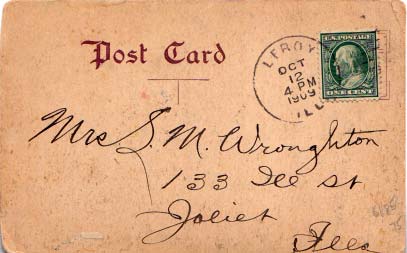 Post Card
U.S. POSTAGE
LEROY
OCT
12
4 PM
1909
ILL
ONE CENT
Mrs S. M. Wroughton
133 Ill st
Joliet
Ills